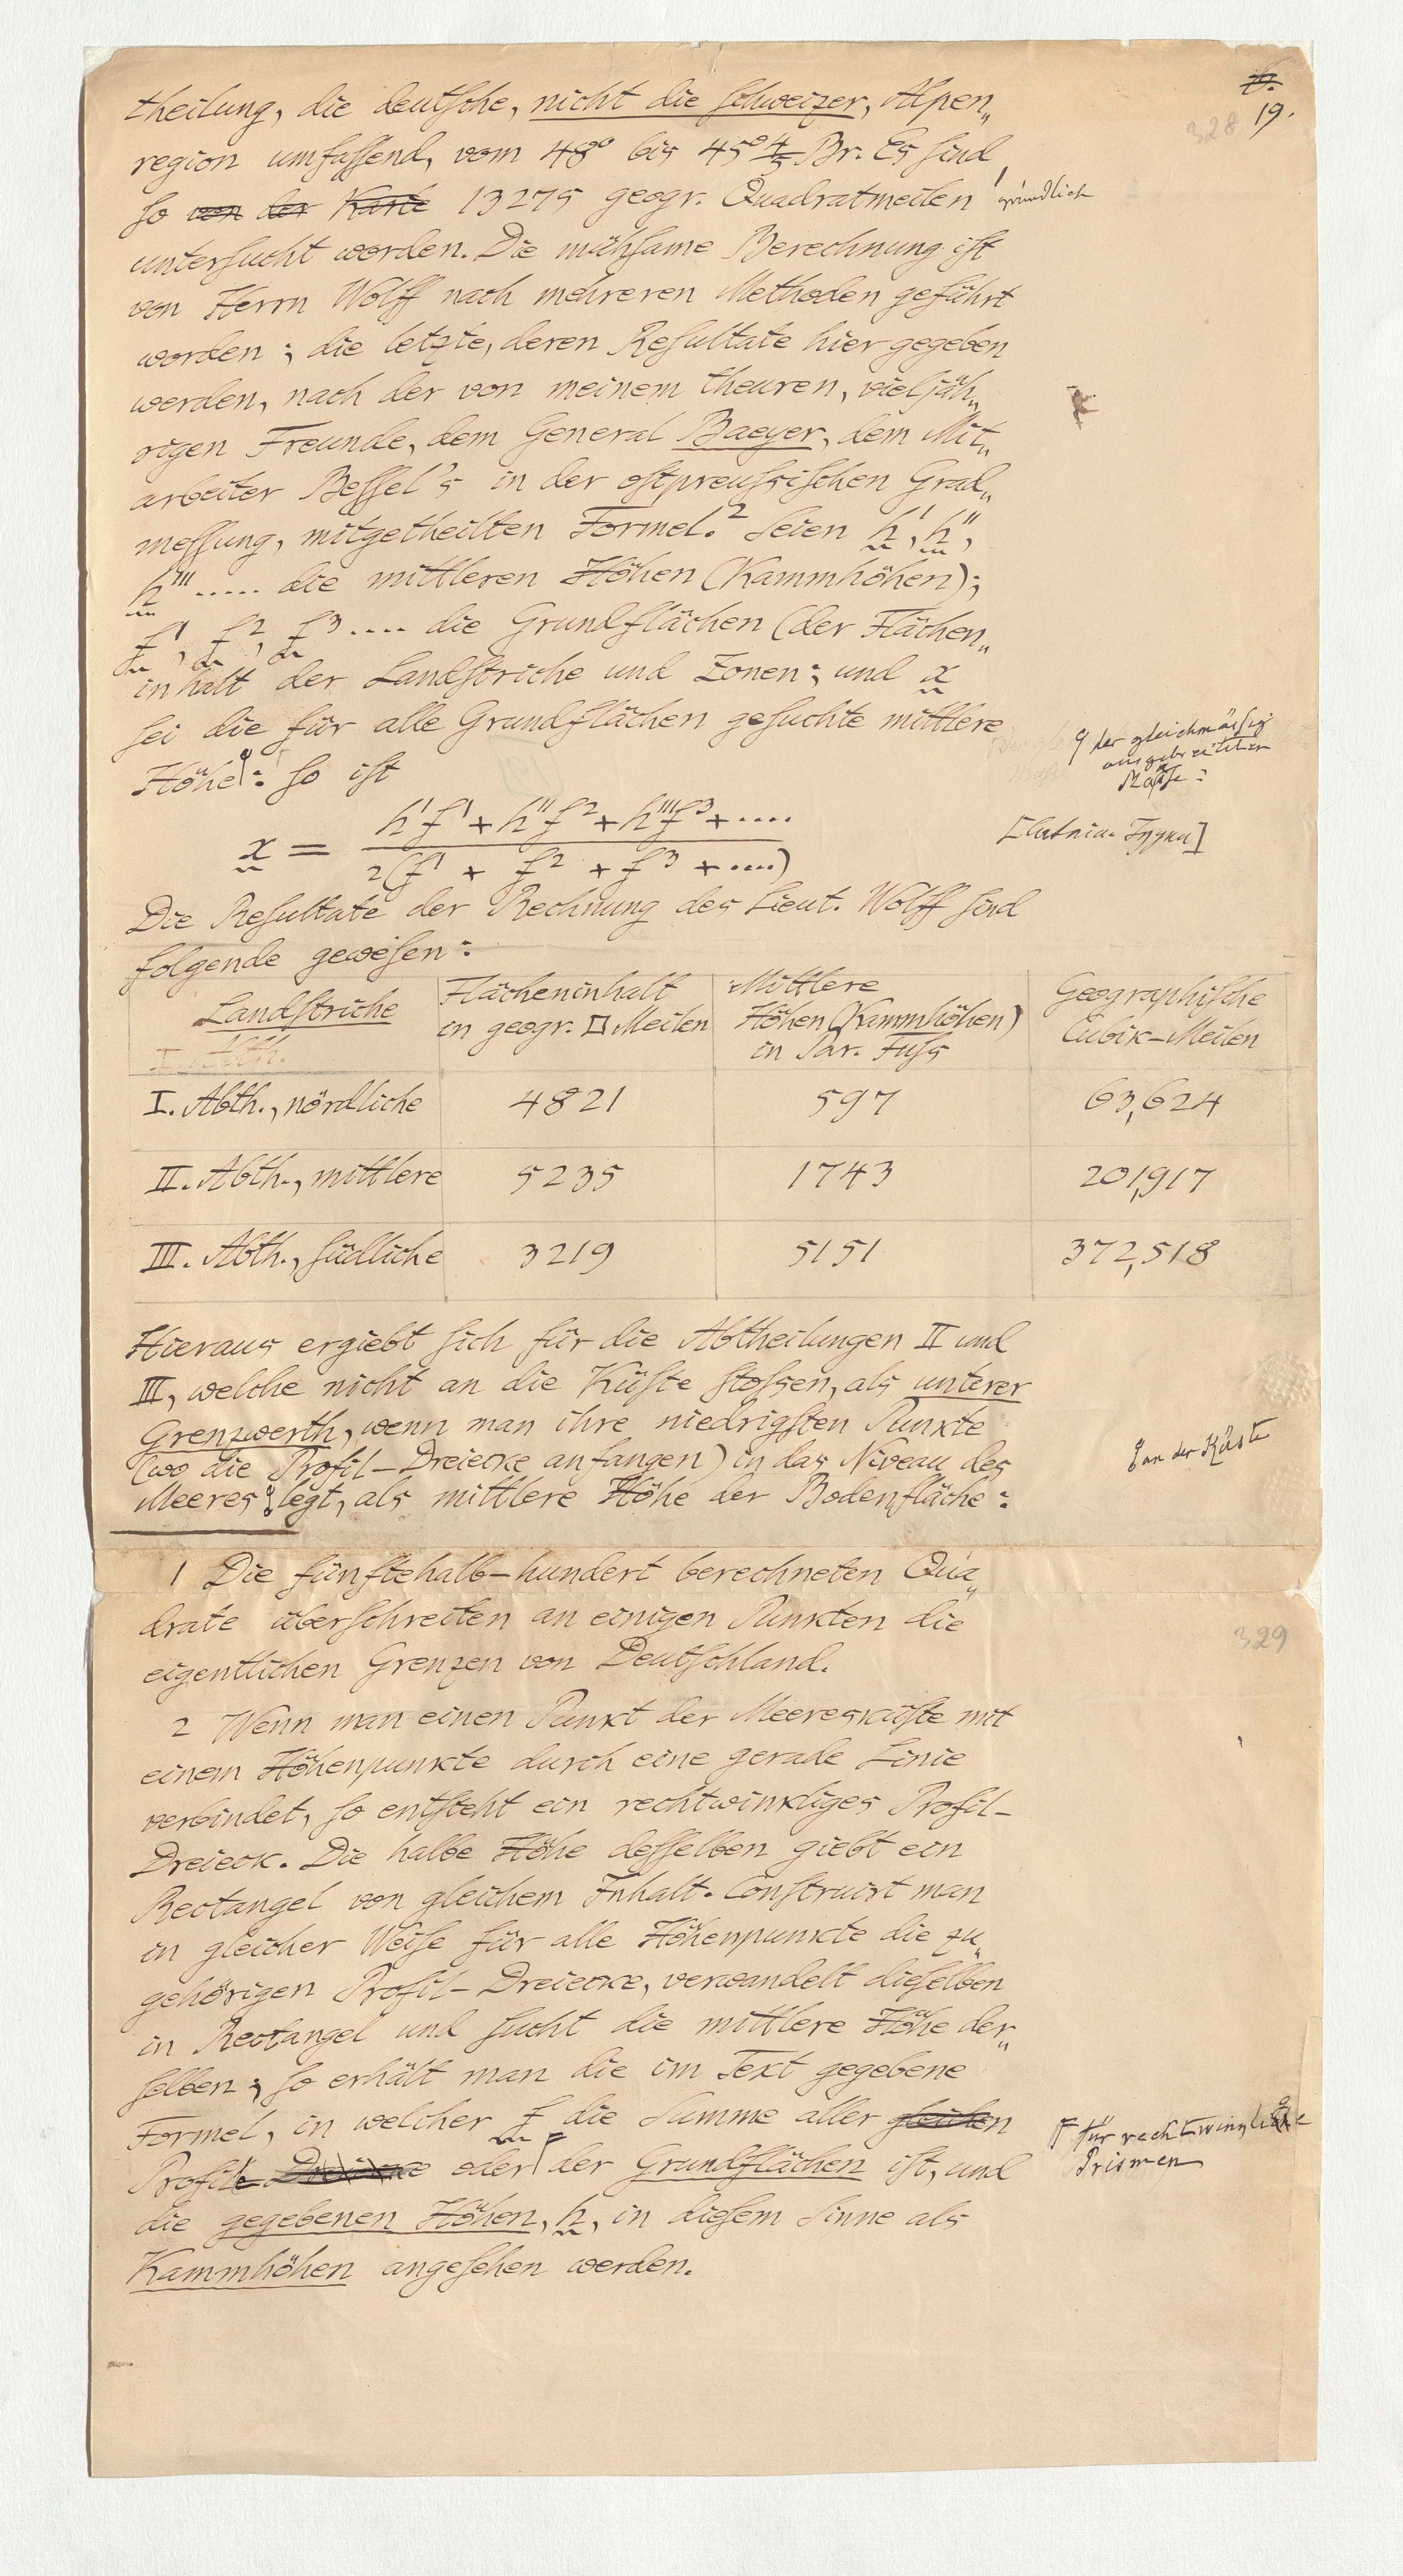 19.
328
theilung, die deutsche, nicht die schweizer, Alpen„
region umfassend, vom 48° bis 45° 4/5 Br. Es sind
so von der Karte 13275 geogr. Quadratmeilen 1 gründlich
untersucht worden. Die mühsame Berechnung ist
von Herrn Wolff nach mehreren Methoden geführt
worden; die letzte, deren Resultate hier gegeben
werden, nach der von meinem theuren, vieljäh„
rigen Freunde, dem General Baeyer, dem Mit„
arbeiter Bessel's in der ostpreussischen Grad„
messung, mitgetheilten Formel.² Seien h', h'',
h''' ..... die mittleren Höhen (Kammhöhen);
f¹, f², f³ .... die Grundflächen (der Flächen„
inhalt der Landstriche und Zonen; und x
sei die für alle Grundflächen gesuchte mittlere
Höhe: so ist
der gleichmässig
ausgebreiteten
Masse:
x = h'f¹ + h''f² + h'''f³ + ....
2(f¹ + f² + f³ + ....)
Die Resultate der Rechnung des Lieut. Wolff sind
folgende gewesen:
Landstriche | Flächeninhalt in geogr. □ Meilen | Mittlere Höhen (Kammhöhen) in Par. Fuss | Geographische Cubik-Meilen
I. Abth., nördliche | 4821 | 597 | 63,624
II. Abth., mittlere | 5235 | 1743 | 201,917
III. Abth., südliche | 3219 | 5151 | 372,518
Hieraus ergiebt sich für die Abtheilungen II und
III, welche nicht an die Küste stossen, als unterer
Grenzwerth, wenn man ihre niedrigsten Punkte
(wo die Profil-Dreiecke anfangen) in das Niveau des
Meeres legt, als mittlere Höhe der Bodenfläche:
an der Küste
1 Die fünftehalb-hundert berechneten Qua„
drate überschreiten an einigen Punkten die
eigentlichen Grenzen von Deutschland.
329
2 Wenn man einen Punkt der Meeresküste mit
einem Höhenpunkte durch eine gerade Linie
verbindet, so entsteht ein rechtwinkliges Profil-
Dreieck. Die halbe Höhe desselben giebt ein
Rectangel von gleichem Inhalt. Construirt man
in gleicher Weise für alle Höhenpunkte die zu„
gehörigen Profil-Dreiecke, verwandelt dieselben
in Rectangel und sucht die mittlere Höhe der„
selben; so erhält man die im Text gegebene
Formel, in welcher f die Summe aller gleichen
Profile Dreiecke oder der Grundflächen ist, und
für rechtwinklige
Prismen
die gegebenen Höhen, h, in diesem Sinne als
Kammhöhen angesehen werden.